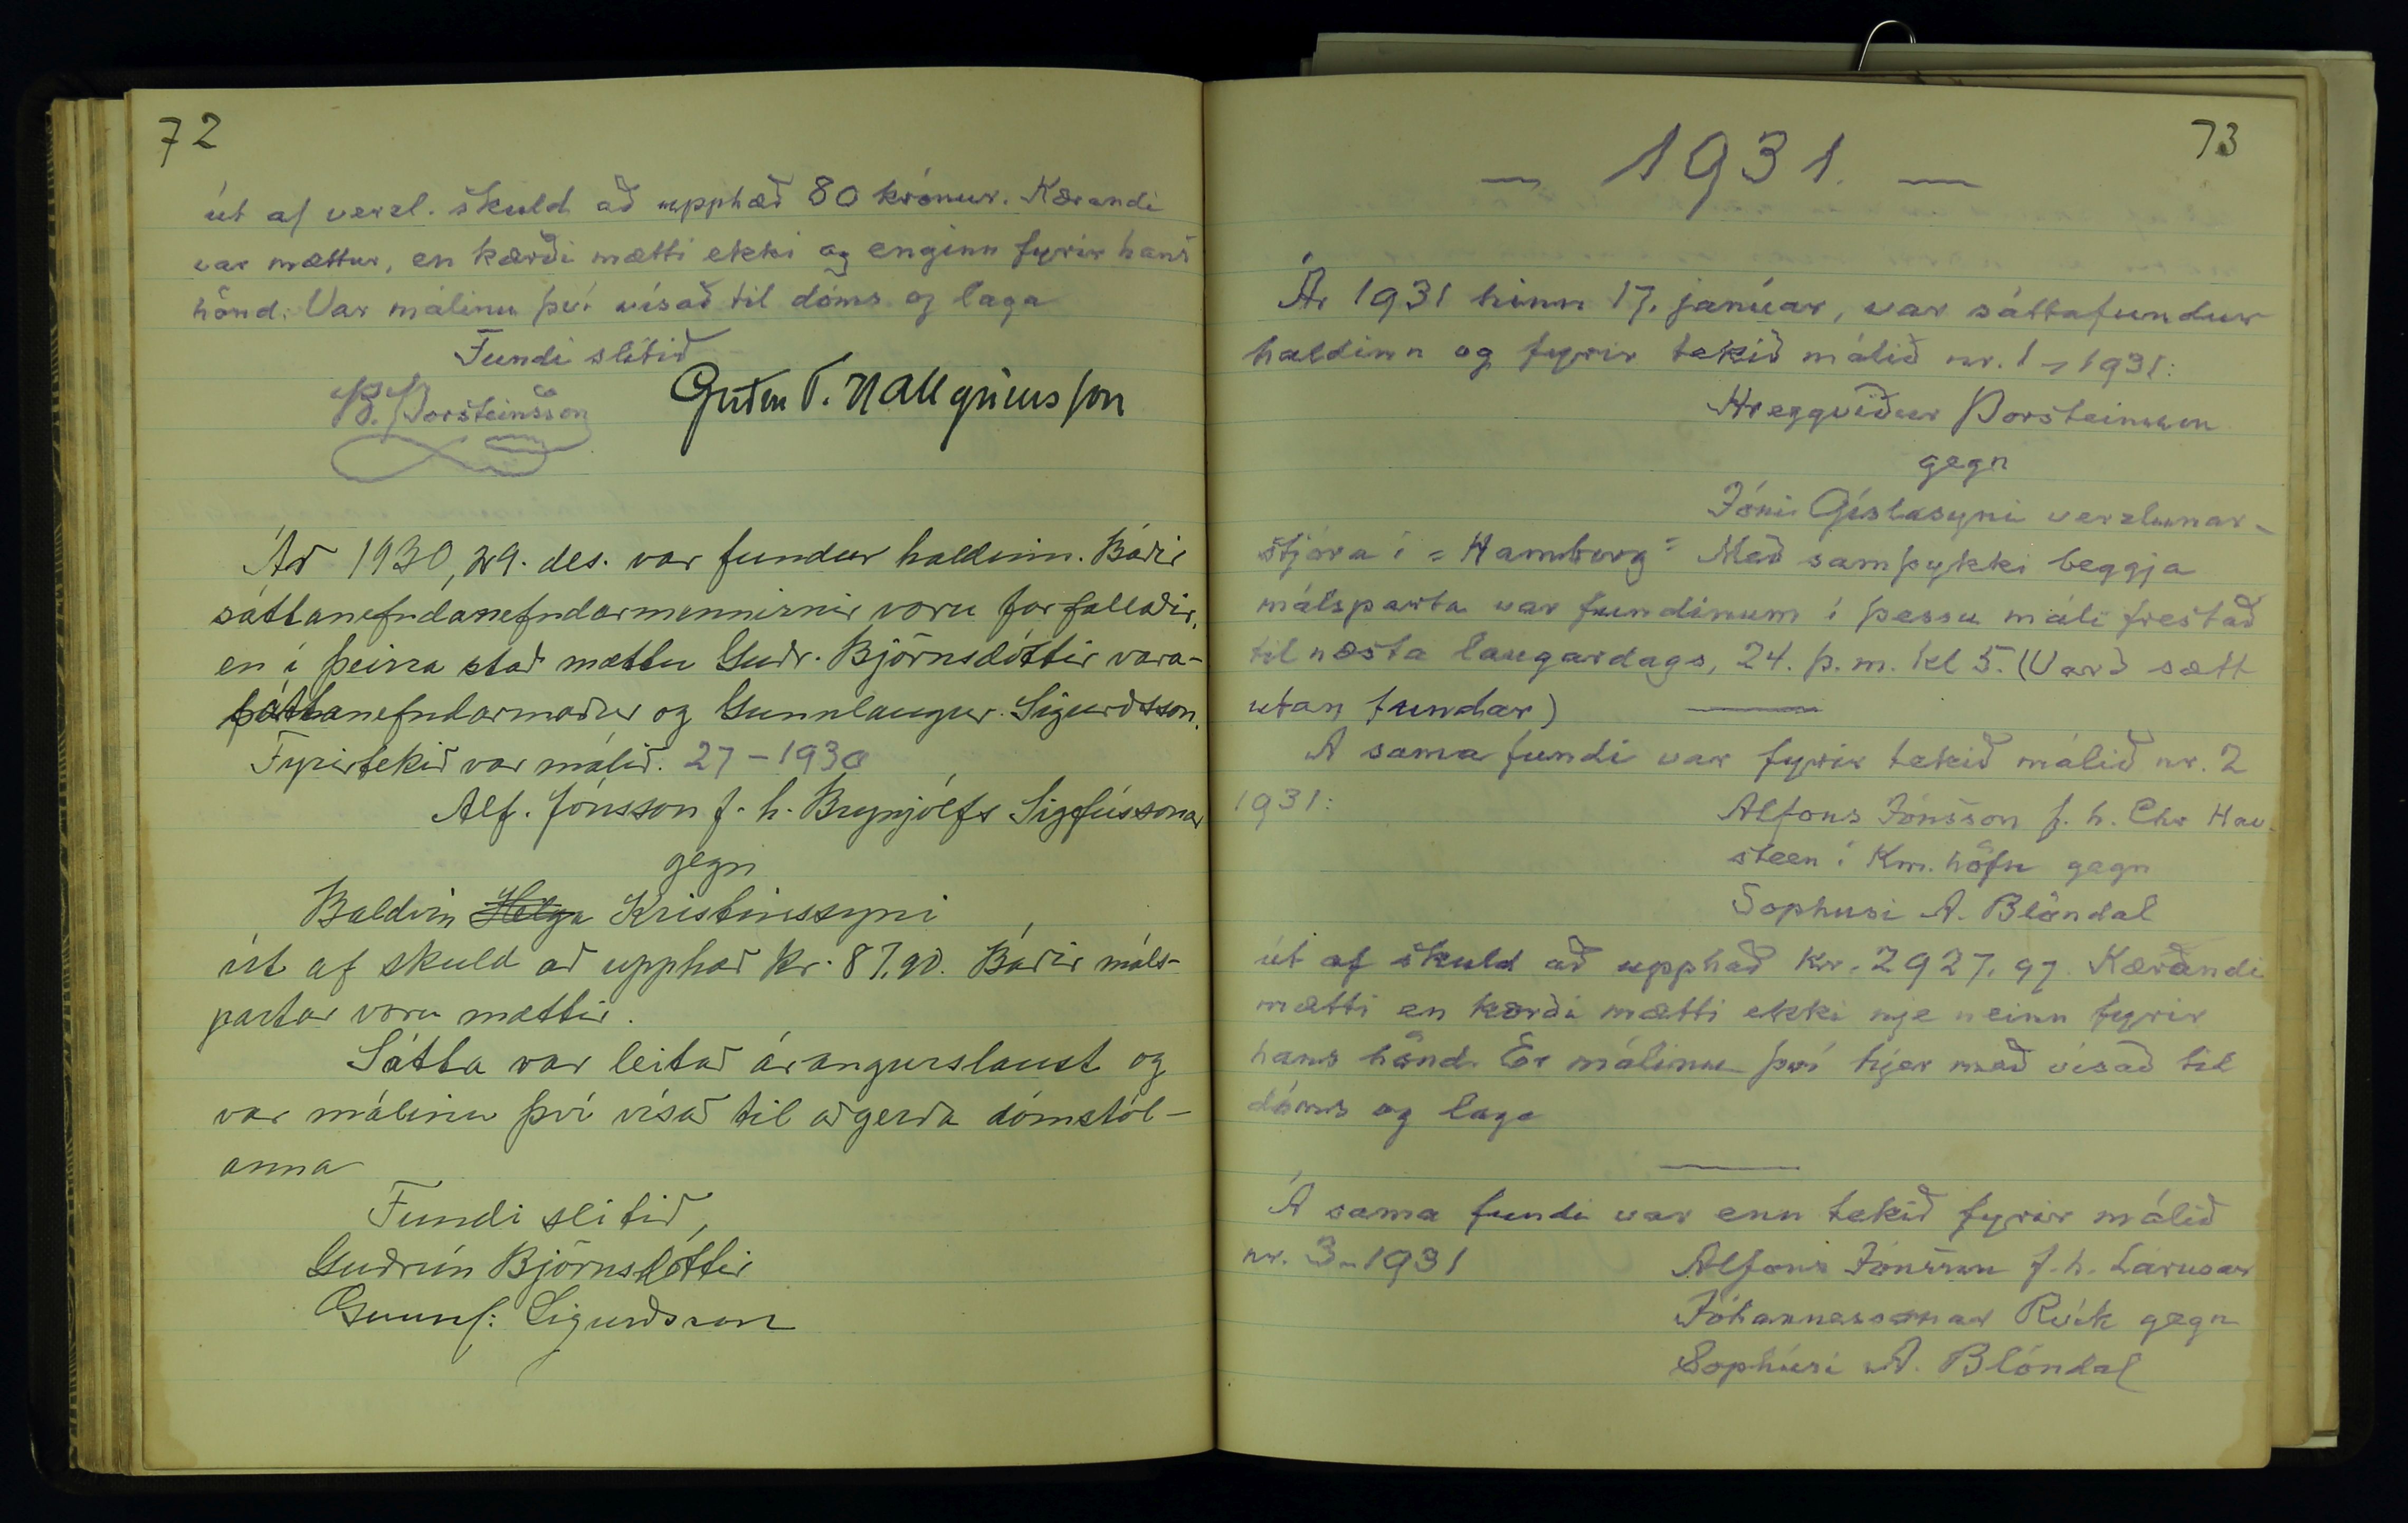 72
út af verzl. skuld að upphæð 80 krónur. Kærandi
var mættur, en kærði mætti ekki og enginn fyrir hans
hönd. Var málinu því vísað til dóms og laga
Fundi slitið
B. Þorsteinsson Guðm T. Hallgrímsson
Ár 1930, 29. des. var fundur haldinn. Báðir
sáttanefndanefndarmennirnir voru forfallaðir,
en í þeirra stað mættu Guðr. Björnsdóttir vara-
sáttanefndarmaður og Gunnlaugur Sigurðsson.
Fyrirtekið var málið. 27-1930
Alf. Jónsson f. h. Brynjólfs Sigfússonar
gegn
Baldvin Helga Kristinssyni
út af skuld að upphæð kr. 87,90. Báðir máls-
partar voru mættir.
Sátta var leitað árangurslaust og
var málinu því vísað til aðgerða dómstól-
anna
Fundi slitið,
Guðrún Björnsdóttir
Gunnl: Sigurðsson
73
— 1931. —
Ár 1931 hinn 17. janúar, var sáttafundur
haldinn og fyrir tekið málið nr. 1 - 1931:
Hreggviður Þorsteinsson
gegn
Jóni Gíslasyni verzlunar-
stjóra í "Hamborg" Með samþykki beggja
málsparta var fundinum í þessu máli frestað
til næsta laugardags, 24. þ. m. kl 5. (Varð sætt
utan fundar)
Á sama fundi var fyrir tekið málið nr. 2
1931:
Alfons Jónsson f. h. Chr Hav-
steen í Km.höfn gegn
Sophusi A. Blöndal
út af skuld að upphæð kr. 2927,97. Kærandi
mætti en kærði mætti ekki nje neinn fyrir
hans hönd. Er málinu því hjer með vísað til
dóms og laga
Á sama fundi var enn tekið fyrir málið
nr. 3-1931 Alfons Jónsson f. h. Lárusar
Jóhannessonar Rvík gegn
Sophusi A. Blöndal